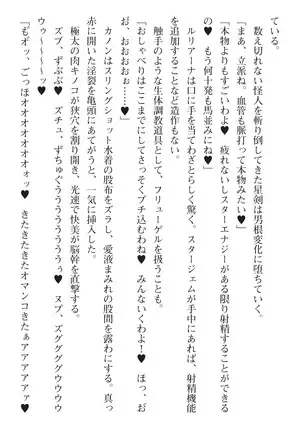 ている。
　数え切れない怪人を斬り倒してきた星剣は男根変化に堕ちていく。
「まあ、立派ね。血管も脈打って本物みたい♥」
「本物よりもすごいわよ♥　疲れないしスターエナジーがある限り射精することができるの♥　もう何十発も馬並みにね♥」
　ルルリアーナは口に手を当ててわざとらしく驚く。スタージェムが手中にあれば、射精機能を追加することなど造作もない。
　触手のような生体調教道具として、フリューゲルを扱うことも。
「おしゃべりはここまでにしてさっそくブチ込むわね♥　みんないくわよ！♥　ほっ、おお、おおおおぉ……♥」
　カノンはスリングショット水着の股布をズラし、愛液まみれの股間を露わにする。真っ赤に開いた淫裂を亀頭にあてがうと、一気に挿入した。
　極太の肉キノコが狭穴を割り開き、光速で快美が脳幹を直撃する。
　ズブ、ずぶぶ♥　ズチュ、ずちゅぐううううううぅぅ♥　ヌプ、ズググググウウウウウゥゥ～～～～ッ♥
「もオッ、ごっほオオオオオオオオぉぉ♥　きたきたきたオマンコきたぁアアアアアァ♥